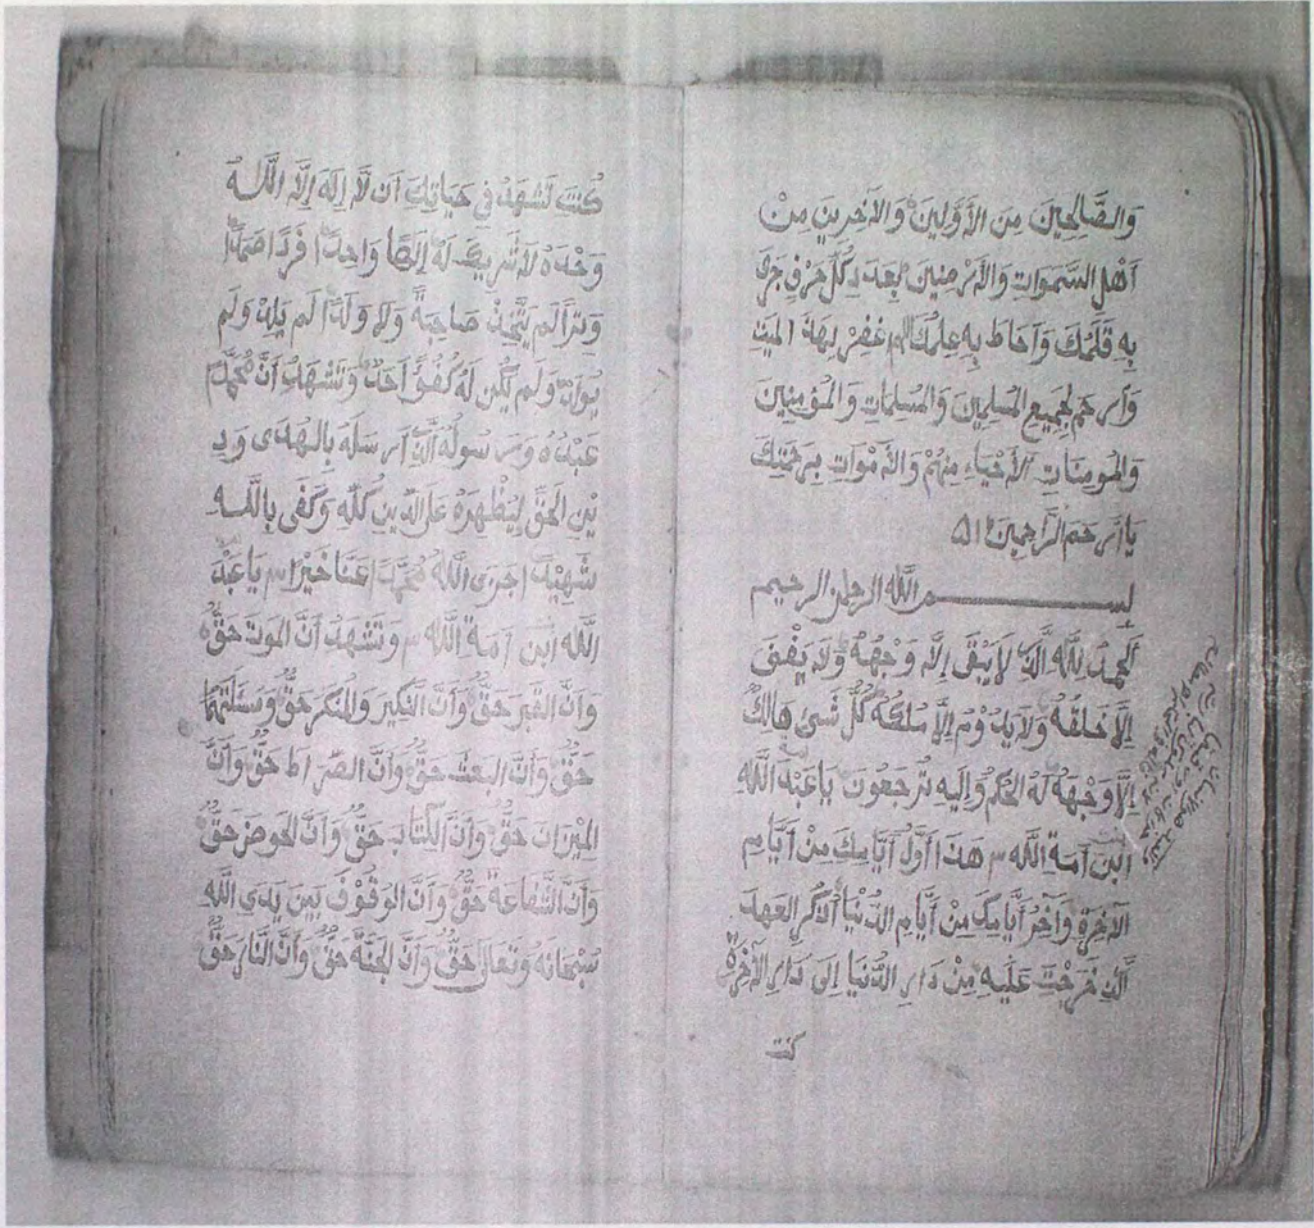 وَالصَّالِحِينَ مِنَ الأَوَّلِينَ وَالآخِرِينَ مِنْ
اَهْلِ السَّمَوَاتِ وَالأَرْضِينَ بِعَدَدِ كُلِّ حَرْفٍ جَرَ
بِهِ قَلَمُكَ وَاَحَاطَ بِهِ عِلمُكَ الهم غفِرْ لِهَذَ المَيِّتِ
وَاَرحَم لِجَمِيعِ المُسلِمِينَ وَالمُسلِمَاتِ وَالمُؤمِنِينَ
وَالمُومِنَاتِ الأَحْيَاءِ مِنْهُمْ وَالأَمْوَاتِ بِرَحمَتِكَ
يَا اَرحَمَ الرَّاحِمِينَ
بســـــــم الله الرحمن الرحيم
اَلحَمدُ لِلَّهِ الَّذِ لاَيَبْقَى اِلَّا وَجْهُهُ وَلاَ يَفْقَى
اِلاَّ خَلقُهُ وَلاَيَدُوْمُ اِلاَّ مُلكُهُ كُلُّ شَىئٍ هَالِكٌ
اِلَّا وَجْهَهُ لَهُ الحُكمُ وَاِلَيهِ تُرجَعُونَ يَاعَبْدَ اللَّهِ
ابْنَ اَمَةِ اللَّهِ م هَذَا اَوَّلُ اَيَّامِكَ مِنْ اَيَّامِ
الآخِرَةِ وَاَخِرُ اَيَّامِكَ مِنْ اَيَّامِ الدُّنْيَا اُذكُرِ العَهدَ
الَّذِ خَرَجْتَ عَلَيهِ مِنْ دَارِ الدُّنيَا اِلَى دَارِ الأَخِرَةِ
كنت
كُنْتَ تَشهَدُ فِي حَيَاتِكَ اَن لَّا اِلَهَ اِلَّا اللَّهُ
وَحْدَهُ لاَشَرِيكَ لَهُ اِلَهًا وَاحِدًا فَردًا صَمَدًا
وَتِرًا لَم يَتَّخِذ صَاحِبَةً وَلاَ وَلَدًا لَم يَلِدْ وَلَم
يُولَدْ وَلَم يَكُن لَهُ كُفُؤًا اَحَدٌ وَتَشْهَدُ اَنَّ مُحَمَّدً
عَبْدُهُ وَرَسُولُهُ الَّذِ اَرسَلَهَ بِالهُدَى وَدِ
يْنِ الحَقِّ لِيُظْهِرَهُ عَلَى الدِّينِ كُلِّهِ وَكَفَى بِاللَّهِ
شَهِيْدًا جَزَى اللَّهُ مُحَمَّدًا عَنَّا خَيْرًا م يَاعَبْدَ
اللَّهِ ابْنَ اَمَةِ اللَّهِ م وَتَشهَدُ اَنَّ المَوتَ حَقٌّ
وَاَنَّ القَبرَ حَقٌّ وَاَنَّ النَّكِيرَ وَالمُنْكَرَ حَقٌّ وَسَئَلَتَهُمَا
حَقٌّ وَاَنَّ البَعثَ حَقٌّ وَاَنَّ الصِّرَاطَ حَقٌّ وَاَنَّ
المِيْزَانَ حَقٌّ وَاَنَّ الكِتَابَ حَقٌّ وَاَنَّ الحَوضَ حَقٌّ
وَاَنَّ الشَّفَاعَةَ حَقٌّ وَاَنَّ الوَقُوْفَ بَينَ يَدَىِ اللَّهِ
سُبْحَانَهُ وَتَعَالَى حَقٌّ وَاَنَّ الجَنَّةَ حَقٌّ وَاَنَّ النَّارَ حَقٌّ